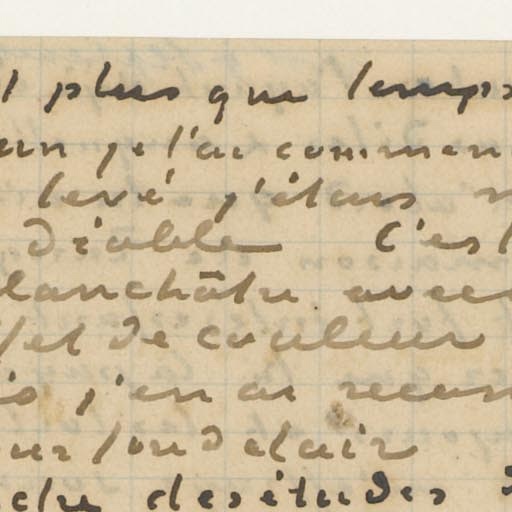 plus que temps
je l'ai commen
levé j'étais
diable C'est
blanchâtre avec
et de couleur
j'en ai recom
sur fond clair
des études